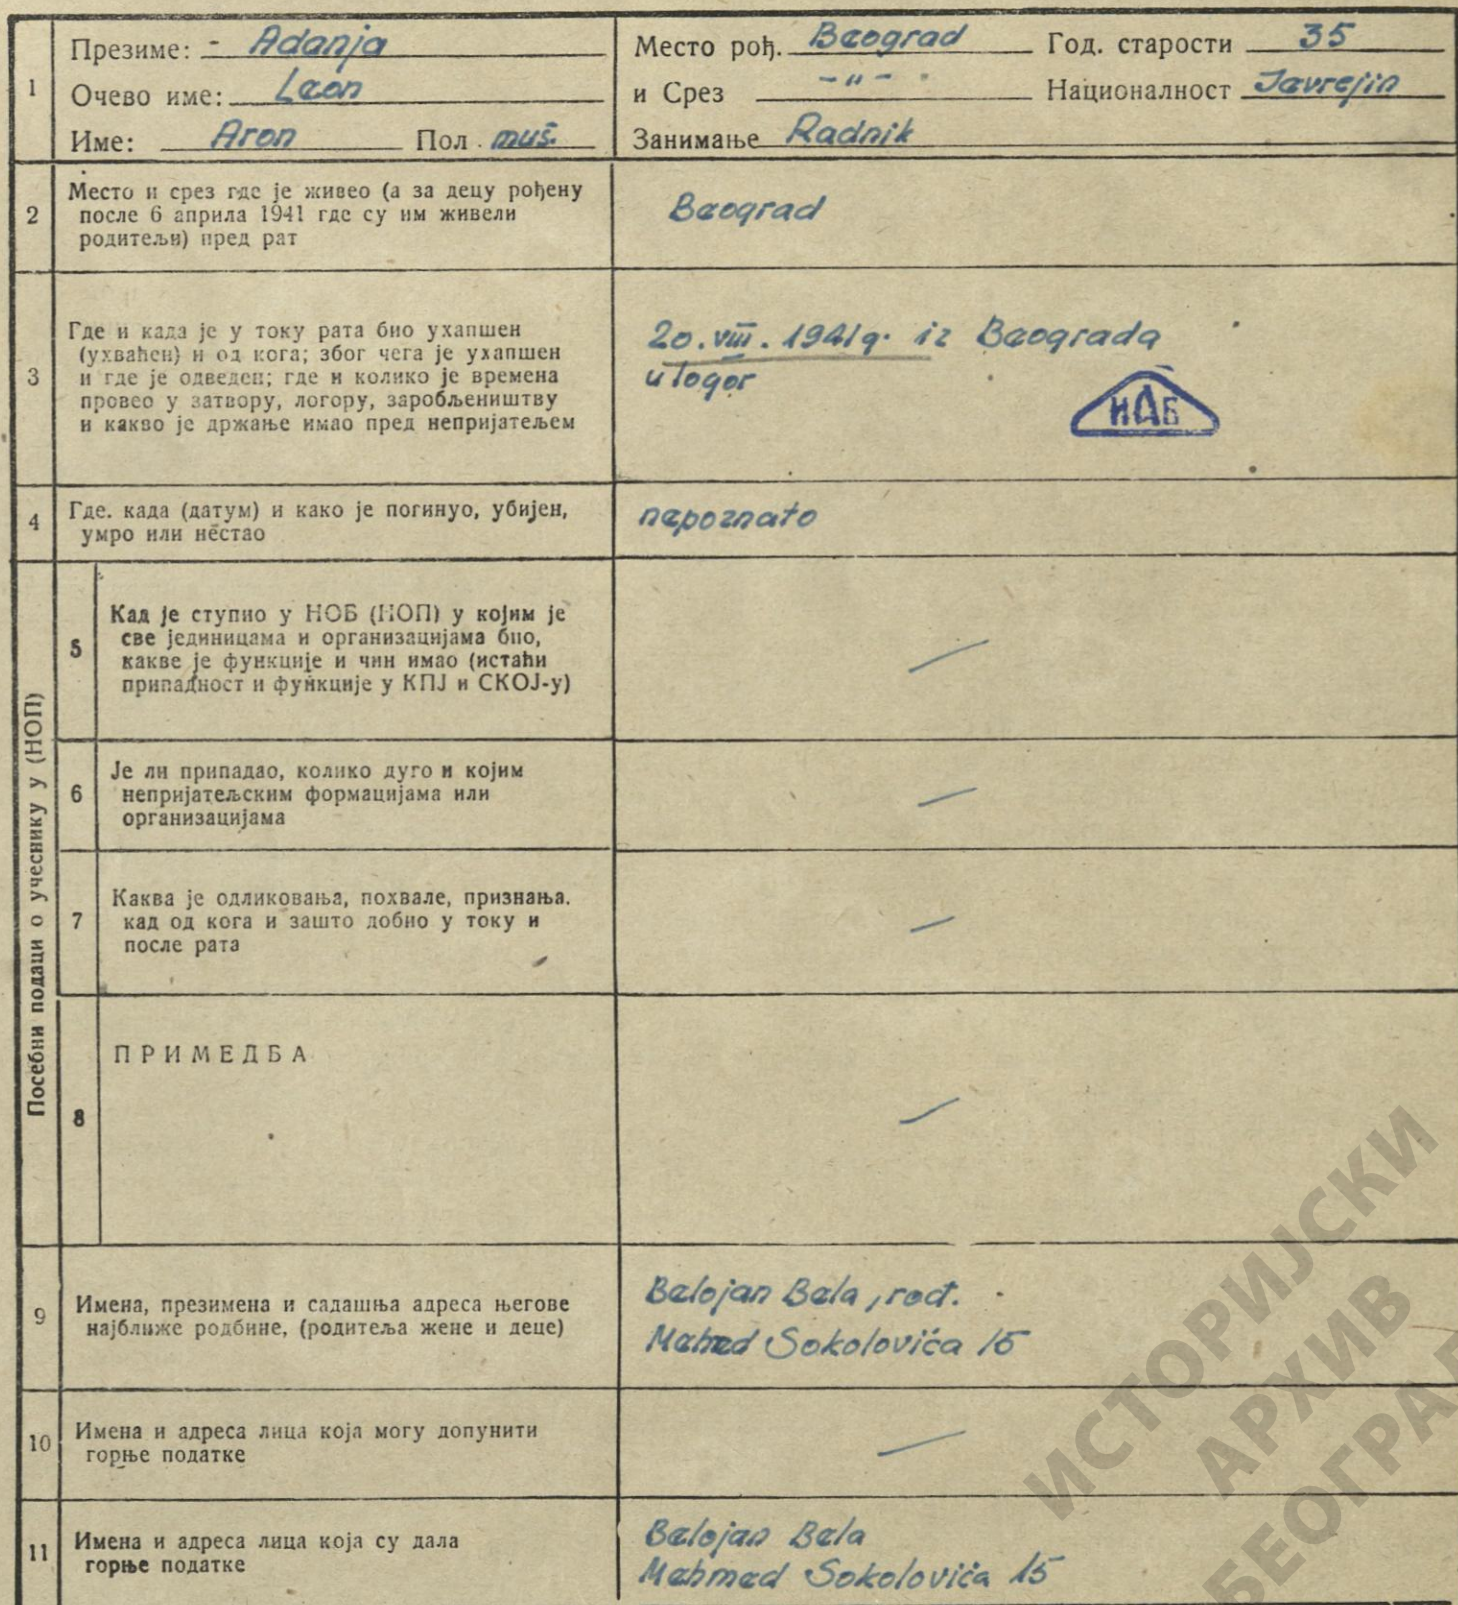 1
Презиме: - Adanja
Очево име: Leon
Име: Aron Пол muš.
Место рођ. Beograd Год. старости 35
и Срез -"- Националност Jevrejin
Занимање Radnik
2
Место и срез где је живео (а за децу рођену
после 6 априла 1941 где су им живели
родитељи) пред рат
Beograd
3
Где и када је у току рата био ухапшен
(ухваћен) и од кога; због чега је ухапшен
и где је одведен; где и колико је времена
провео у затвору, логору, заробљеништву
и какво је држање имао пред непријатељем
20. VIII. 1941 g. iz Beograda
u logor
ИАБ
4
Где. када (датум) и како је погинуо, убијен,
умро или нестао
nepoznato
Посебни подаци о учеснику у (НОП)
5
Кад је ступио у НОБ (НОП) у којим је
све јединицама и организацијама био,
какве је функције и чин имао (истаћи
припадност и функције у КПЈ и СКОЈ-у)
—
6
Је ли припадао, колико дуго и којим
непријатељским формацијама или
организацијама
—
7
Каква је одликовања, похвале, признања.
кад од кога и зашто добио у току и
после рата
—
8
ПРИМЕДБА
—
9
Имена, презимена и садашња адреса његове
најближе родбине, (родитеља жене и деце)
Belojan Bela, rođ.
Mehmed Sokolovića 15
10
Имена и адреса лица која могу допунити
горње податке
—
11
Имена и адреса лица која су дала
горње податке
Belojan Bela
Mehmed Sokolovića 15
ИСТОРИЈСКИ
АРХИВ
БЕОГРАД